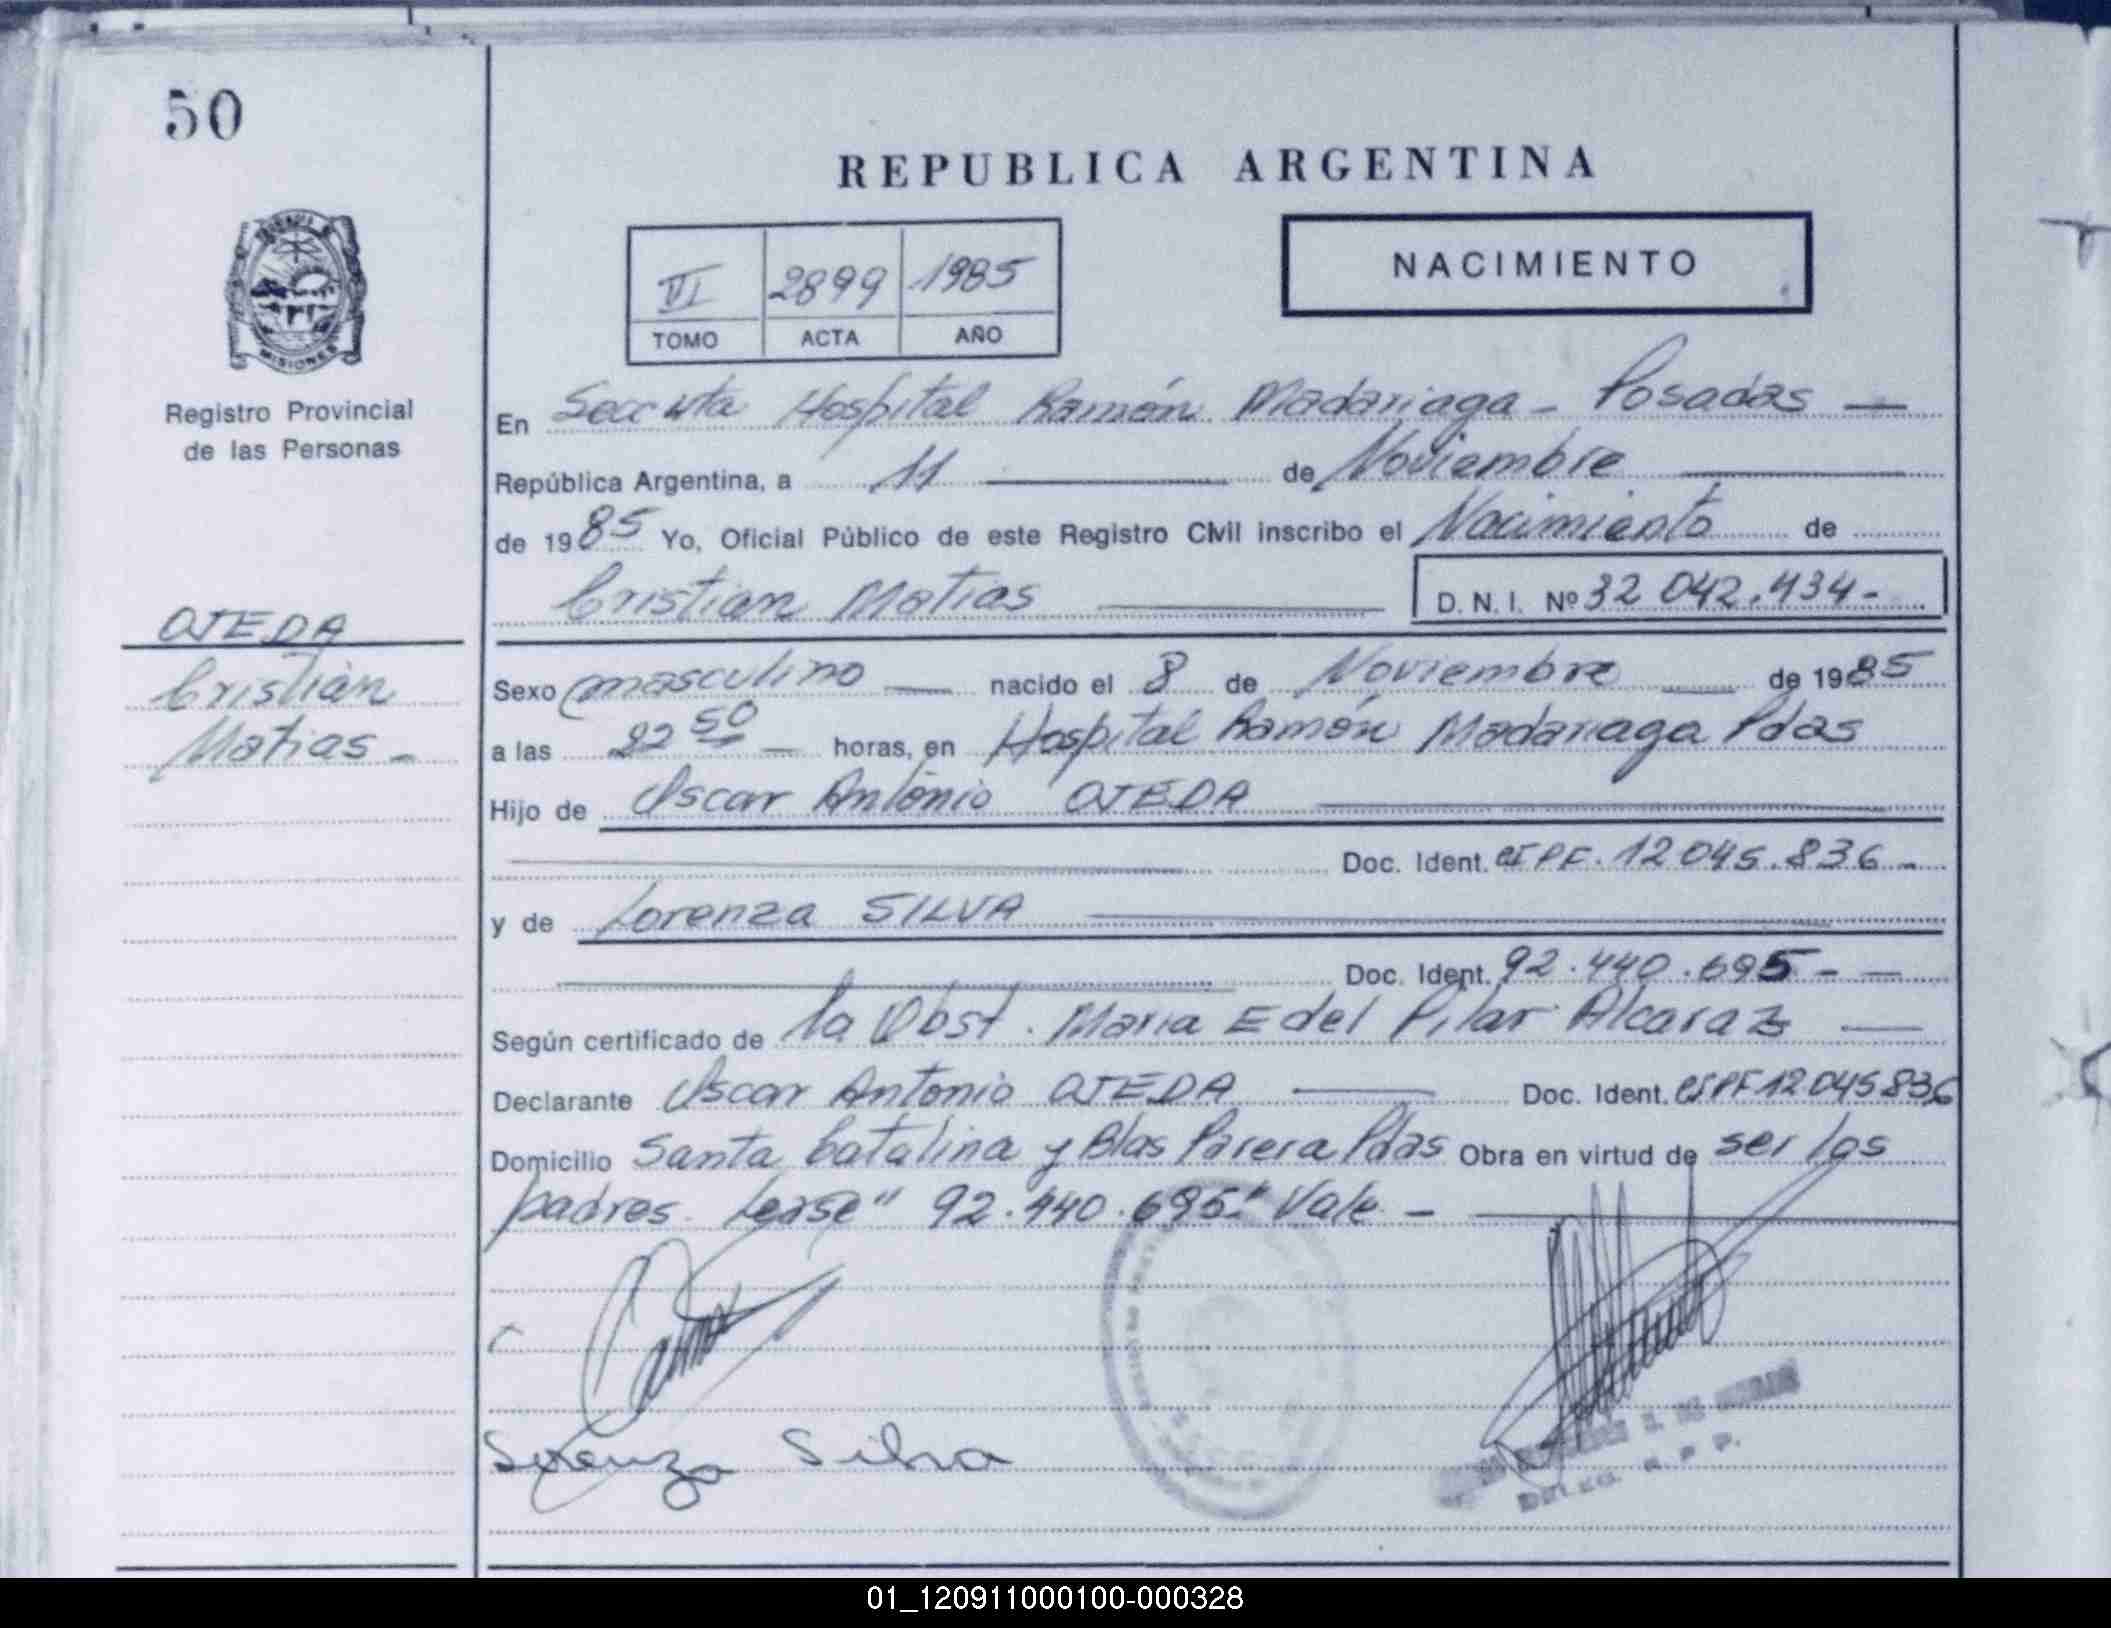 50
REPUBLICA ARGENTINA
NACIMIENTO
VI 2899 1985
TOMO ACTA AÑO
MISIONES
Registro Provincial
de las Personas
En Secc 4ta Hospital Ramón Madariaga - Posadas —
República Argentina, a 11 — de Noviembre —
de 1985 Yo, Oficial Público de este Registro Civil inscribo el Nacimiento de
Cristian Matias — D. N. I. Nº 32 042.434-
OJEDA
Cristian
Matias -
Sexo masculino — nacido el 8 de Noviembre — de 1985
a las 22 50 — horas, en Hospital Ramón Madariaga Pdas
Hijo de Oscar Antonio OJEDA —
Doc. Ident. CIPF. 12 045.836 -
y de Lorenza SILVA —
Doc. Ident. 92.440.695 - —
Según certificado de la Obst. Maria E del Pilar Alcaraz —
Declarante Oscar Antonio OJEDA — Doc. Ident. CIPF 12 045 836
Domicilio Santa Catalina y Blas Parera Pdas Obra en virtud de ser los
padres. Lease "92.440.695" Vale - —
Lorenza Silva
DELEG. R. P. P.
01_120911000100-000328